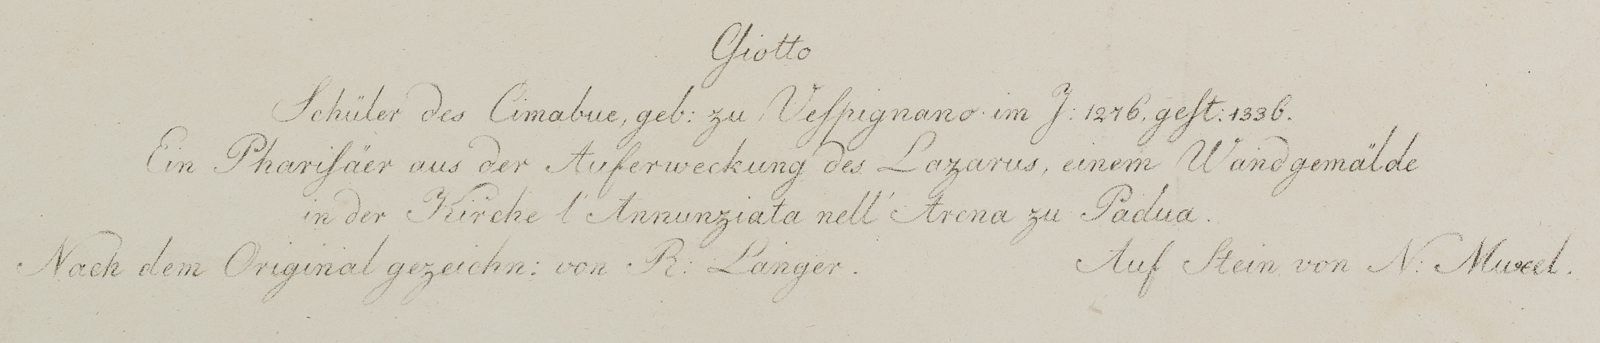 Giotto
Schüler des Cimabue, geb: zu Vespignano im J: 1276, gest: 1336.
Ein Pharisäer aus der Auferweckung des Lazarus, einem Wandgemälde
in der Kirche l'Annunziata nell' Arena zu Padua.
Nach dem Original gezeichn: von R: Langer. Auf Stein von N: Muxel.